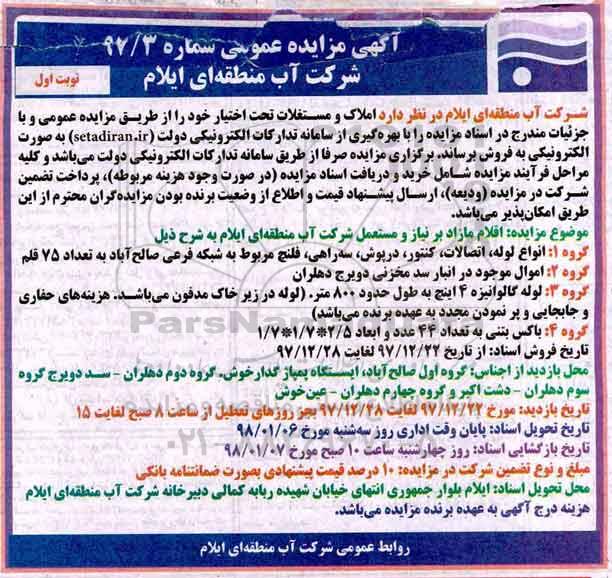 آگهی مزایده عمومی شماره ۹۷/۳
شرکت آب منطقه‌ای ایلام
نوبت اول
شرکت آب منطقه‌ای ایلام در نظر دارد املاک و مستغلات تحت اختیار خود را از طریق مزایده عمومی و با
جزئیات مندرج در اسناد مزایده را با بهره‌گیری از سامانه تدارکات الکترونیکی دولت (setadiran.ir) به صورت
الکترونیکی به فروش برساند. برگزاری مزایده صرفا از طریق سامانه تدارکات الکترونیکی دولت می‌باشد و کلیه
مراحل فرآیند مزایده شامل خرید و دریافت اسناد مزایده (در صورت وجود هزینه مربوطه)، پرداخت تضمین
شرکت در مزایده (ودیعه)، ارسال پیشنهاد قیمت و اطلاع از وضعیت برنده بودن مزایده‌گران محترم از این
طریق امکان‌پذیر می‌باشد.
موضوع مزایده: اقلام مازاد بر نیاز و مستعمل شرکت آب منطقه‌ای ایلام به شرح ذیل
گروه ۱: انواع لوله، اتصالات، کنتور، درپوش، سه‌راهی، فلنج مربوط به شبکه فرعی صالح‌آباد به تعداد ۷۵ قلم
گروه ۲: اموال موجود در انبار سد مخزنی دویرج دهلران
گروه ۳: لوله گالوانیزه ۴ اینچ به طول حدود ۸۰۰ متر. (لوله در زیر خاک مدفون می‌باشد. هزینه‌های حفاری
و جابجایی و پر نمودن مجدد به عهده برنده می‌باشد)
گروه ۴: باکس بتنی به تعداد ۴۴ عدد و ابعاد ۲/۵*۱/۷*۱/۷
تاریخ فروش اسناد: از تاریخ ۹۷/۱۲/۲۲ لغایت ۹۷/۱۲/۲۸
محل بازدید از اجناس: گروه اول صالح‌آباد، ایستگاه پمپاژ گدارخوش. گروه دوم دهلران - سد دویرج گروه
سوم دهلران - دشت اکبر و گروه چهارم دهلران - عین‌خوش
تاریخ بازدید: مورخ ۹۷/۱۲/۲۲ لغایت ۹۷/۱۲/۲۸ بجز روزهای تعطیل از ساعت ۸ صبح لغایت ۱۵
تاریخ تحویل اسناد: پایان وقت اداری روز سه‌شنبه مورخ ۹۸/۰۱/۰۶
تاریخ بازگشایی اسناد: روز چهارشنبه ساعت ۱۰ صبح مورخ ۹۸/۰۱/۰۷
مبلغ و نوع تضمین شرکت در مزایده: ۱۰ درصد قیمت پیشنهادی بصورت ضمانتنامه بانکی
محل تحویل اسناد: ایلام بلوار جمهوری انتهای خیابان شهیده ربابه کمالی دبیرخانه شرکت آب منطقه‌ای ایلام
هزینه درج آگهی به عهده برنده مزایده می‌باشد.
روابط عمومی شرکت آب منطقه‌ای ایلام